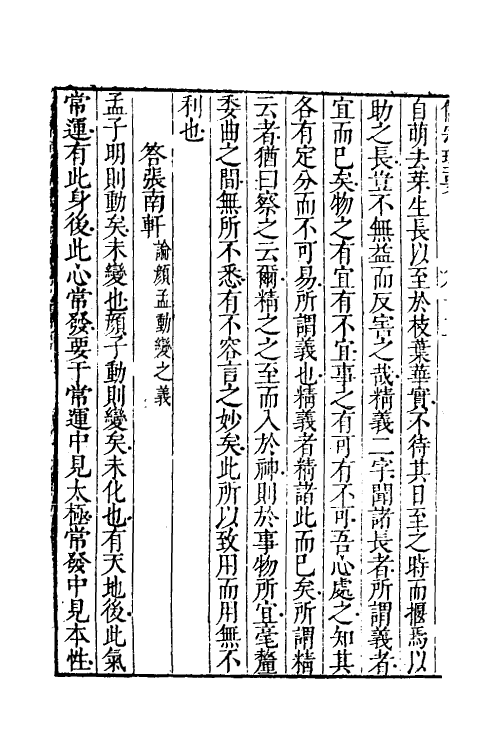 自萌去芽生長以至於枝葉華實不待其日至之時而揠焉以
助之長豈不無益而反害之哉精義二字聞諸長者所謂義者
宜而已矣物之有宜有不宜事之有可有不可吾心處之知其
各有定分而不可易所謂義也精義者精諸此而已矣所謂精
云者猶曰察之云爾精之之至而入於神則於事物所宜毫釐
委曲之間無所不悉有不容言之妙矣此所以致用而用無不
利也
答張南軒 論顏孟動變之義
孟子明則動矣未變也顏子動則變矣未化也有天地後此氣
常運有此身後此心常發要于常運中見太極常發中見本性